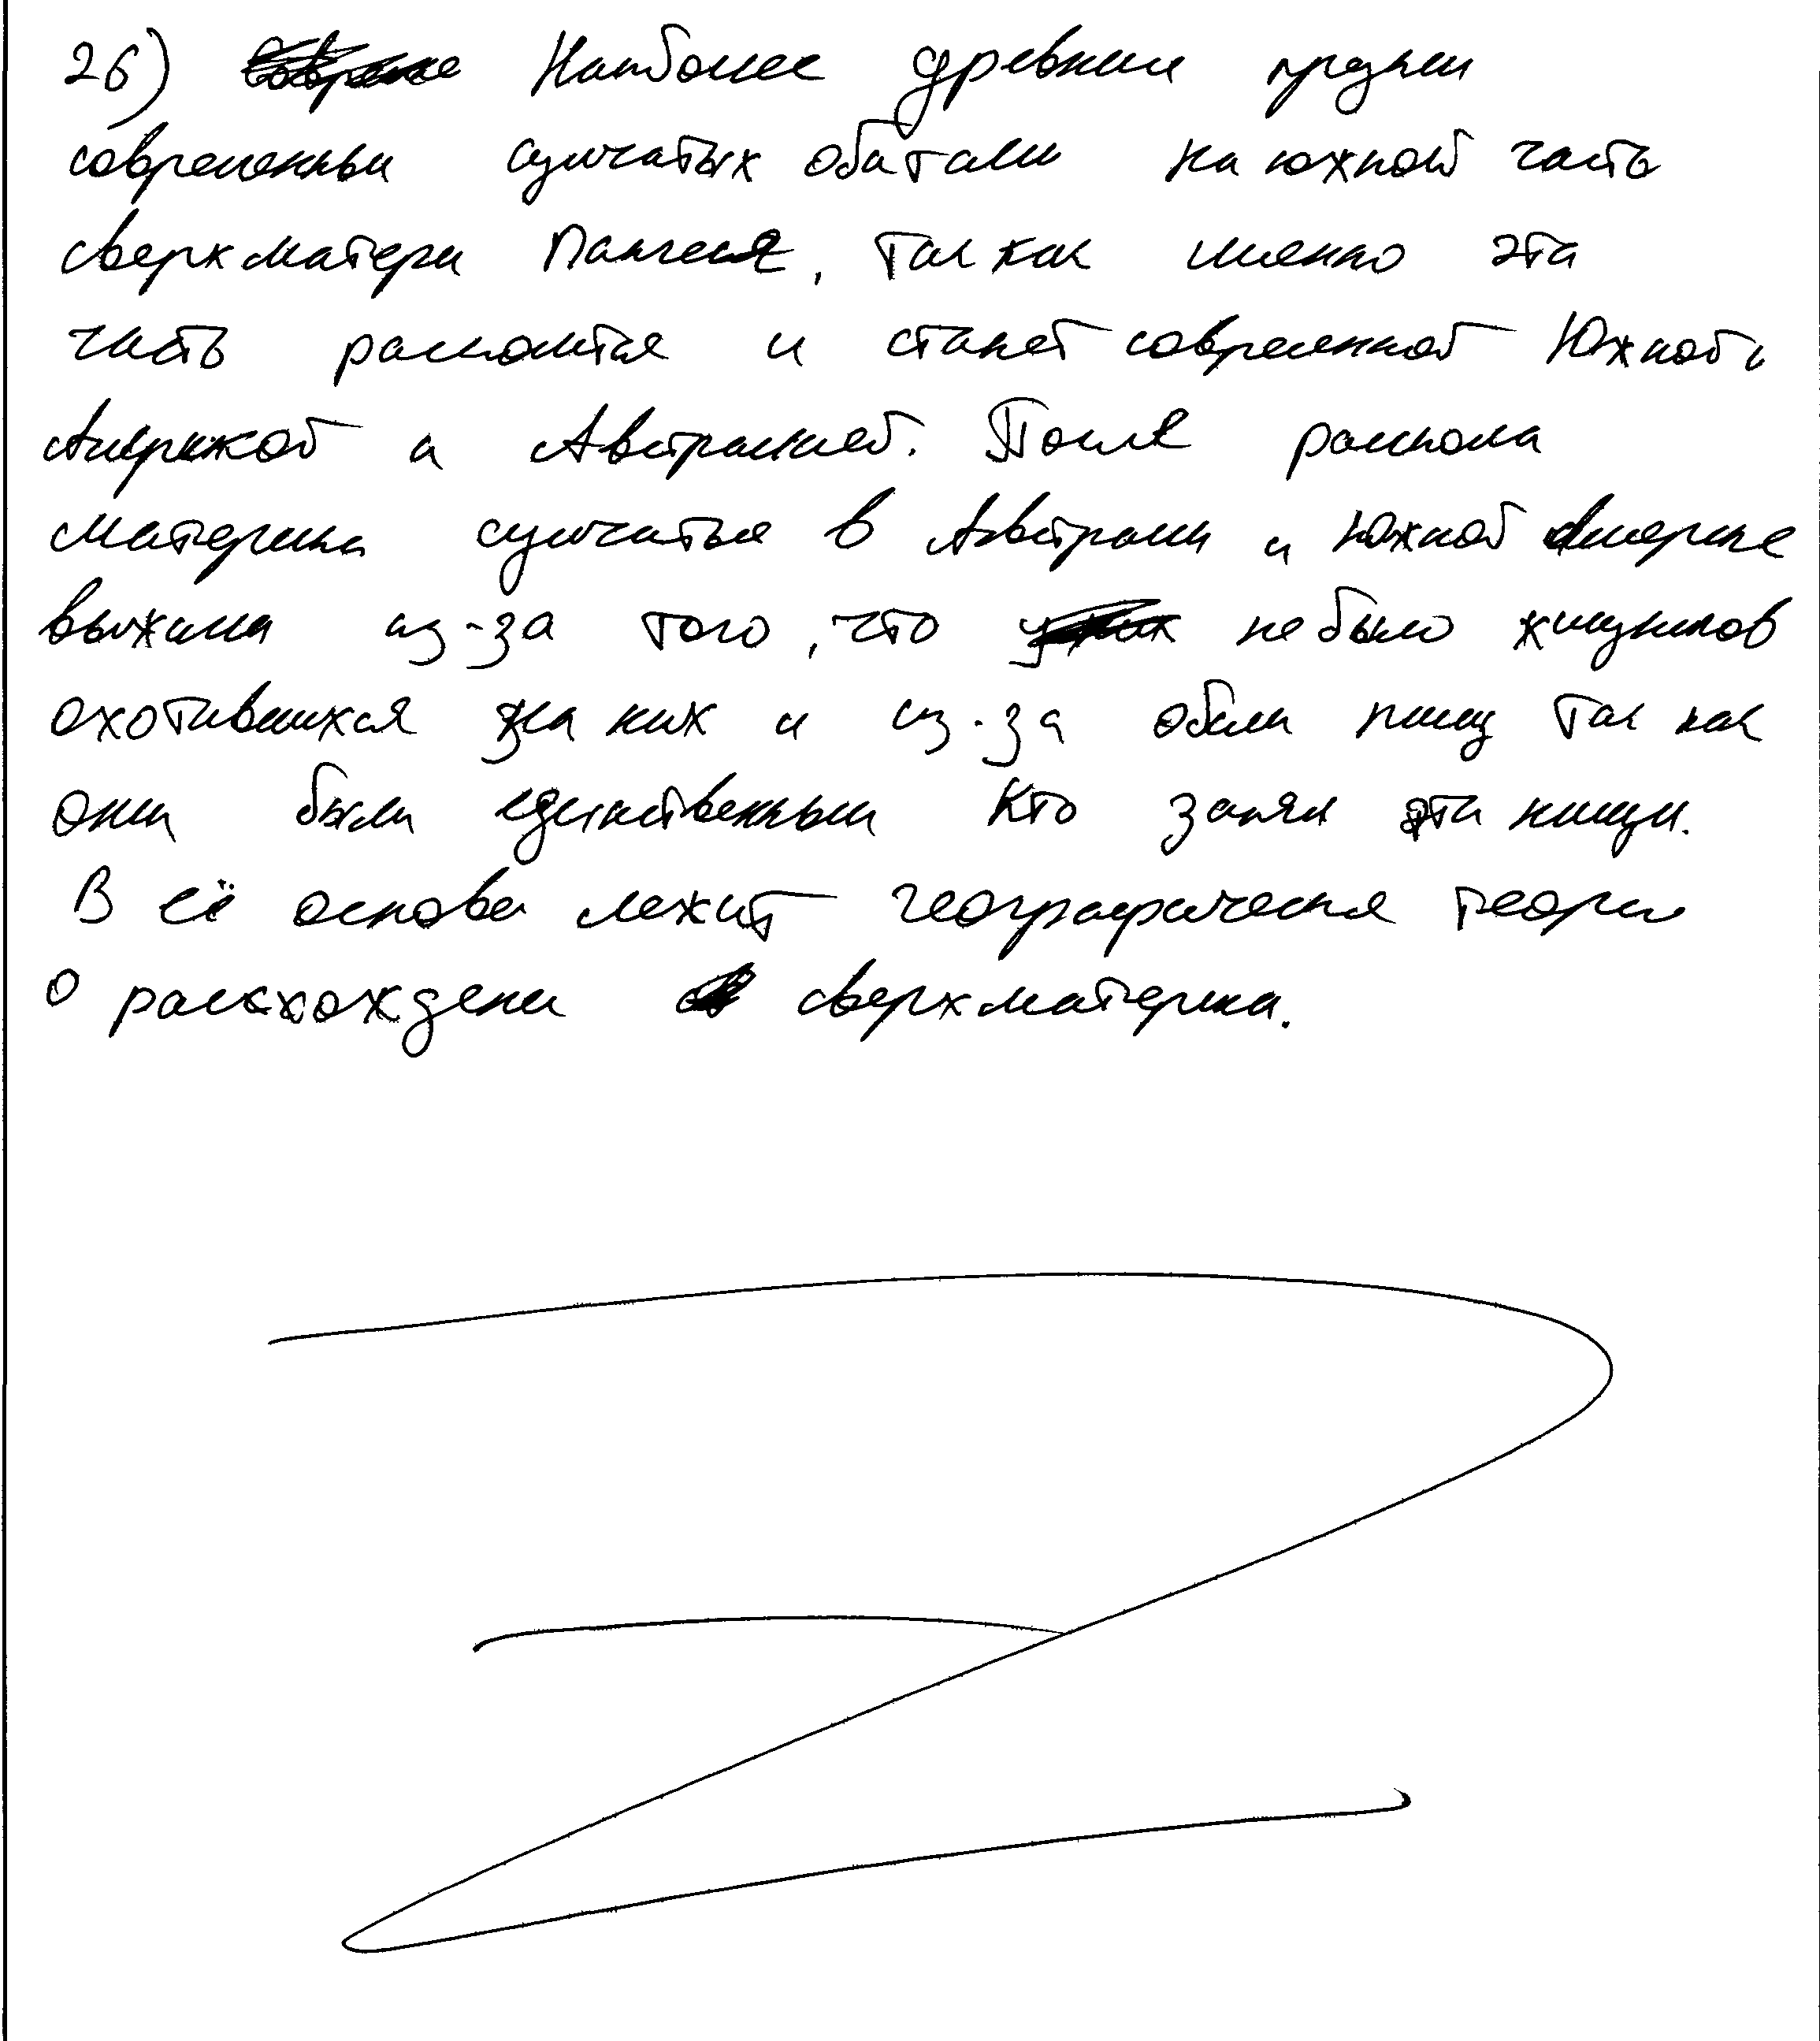 26) Наиболее древнии предки
современьи сумчатых обитали на южной часть
сверхматери Пангея, так как именно эта
часть расколится и станет современной Южной
Америкой и Австралией. После раскола
материка сумчатые в Австрали и Южной Америке
выжили из-за того, что не было хищников
охотившихся на них и из-за обили пищу так как
они были единственным кто занял эти нищи.
В её основе лежит географическая теори
о расхождени сверхматерика.